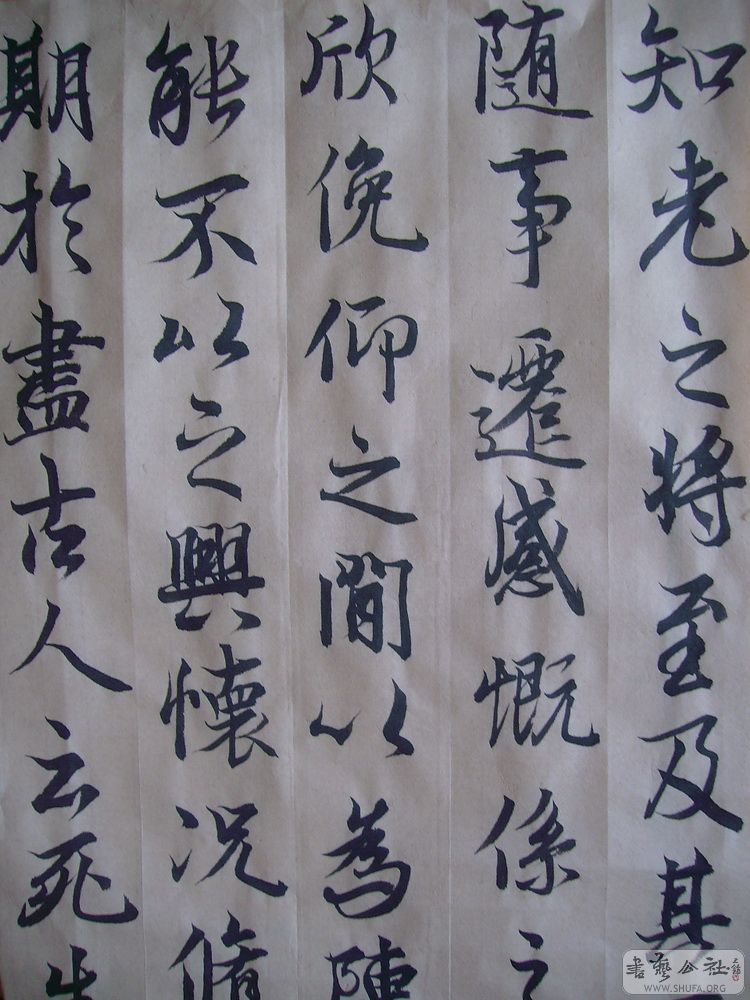 知老之将至及其
随事遷感慨係之
欣俛仰之間以為陳
能不以之興懷况脩
期於盡古人云死生
書藝公社
WWW.SHUFA.ORG